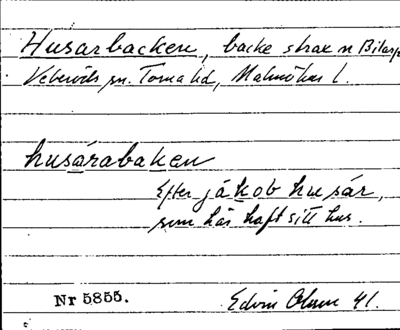 Husarbacken, backe strax n
Veberöds sn. Torna hd, Malmöhus l.
husárabaken
Efter jákob husár,
som här haft sitt hus.
Nr 5855.
Edvin Ohlsson 41.